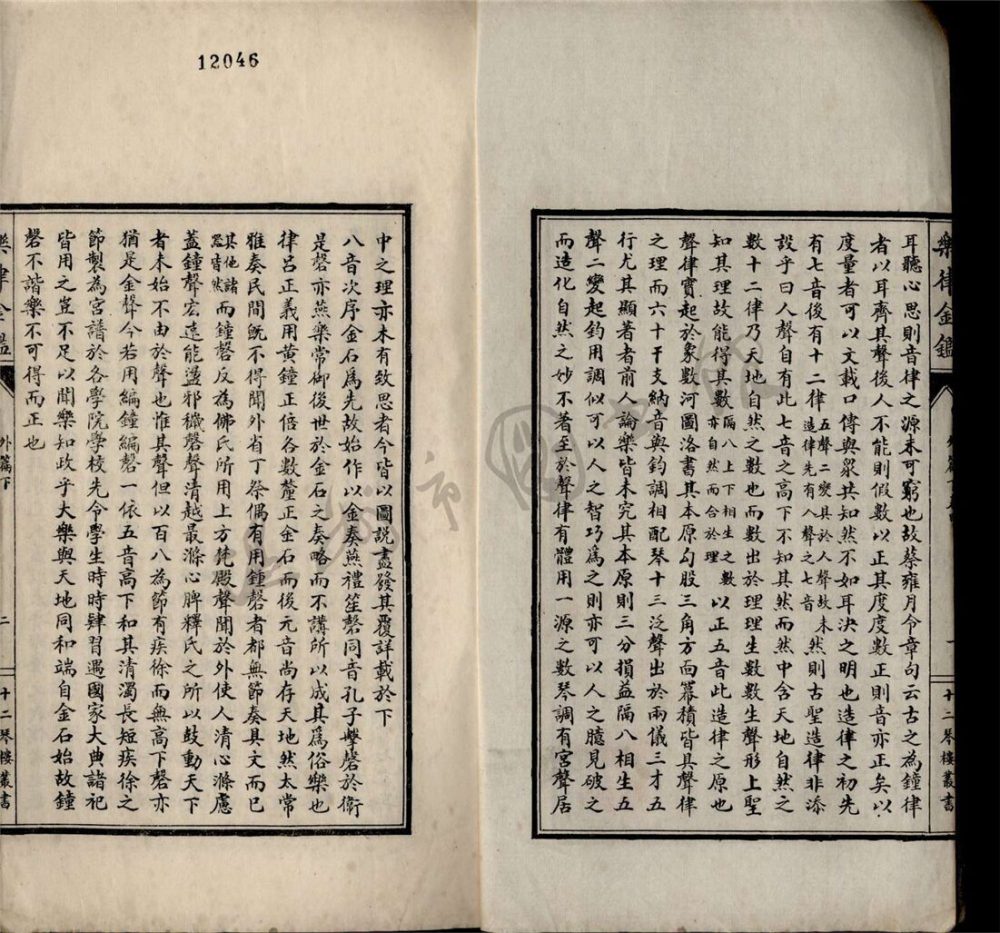 12046
樂律金鑑
十二琴樓叢書
耳聽心思則音律之源未可窮也故蔡雍月令章句云古之為鐘律
者以耳齊其聲後人不能則假數以正其度度數正則音亦正矣以
度量者可以文載口傳與衆共知然不如耳決之明也造律之初先
有七音後有十二律五聲二變具於人聲故未造律先有八聲之七音然則古聖造律非添
設乎曰人聲自有此七音之高下不知其然而然中含天地自然之
數十二律乃天地自然之數也而數出於理理生數數生聲形上聖
知其理故能得其數隔八上下相生之數亦自然而合於理以正五音此造律之原也
聲律實起於象數河圖洛書其本原勾股三角方面冪積皆具聲律
之理而六十干支納音與鈞調相配琴十三泛聲出於兩儀三才五
行尤其顯著者前人論樂皆未究其本原則三分損益隔八相生五
聲二變起鈞用調似可以人之智巧為之則亦可以人之臆見破之
而造化自然之妙不著至於聲律有體用一源之數琴調有宮聲居
中之理亦未有致思者今皆以圖說盡發其覆詳載於下
八音次序金石為先故始作以金奏燕禮笙磬同音孔子擊磬於衞
是磬亦燕樂常御後世於金石之奏略而不講所以成其為俗樂也
律呂正義用黃鐘正倍各數釐正金石而後元音尚存天地然太常
雅奏民間旣不得聞外省丁祭偶有用鍾磬者都無節奏具文而已
其他諸器皆然而鐘磬反為佛氏所用上方梵殿聲聞於外使人清心滌慮
蓋鐘聲宏遠能盪邪穢磬聲清越最滌心脾釋氏之所以鼓動天下
者未始不由於聲也惟其聲但以百八為節有疾徐而無高下磬亦
猶是金聲今若用編鐘編磬一依五音高下和其清濁長短疾徐之
節製為宮譜於各學院學校先令學生時時肄習遇國家大典諸祀
皆用之豈不足以聞樂知政乎大樂與天地同和端自金石始故鐘
磬不諧樂不可得而正也
樂律金鑑
外篇下
二
十二琴樓叢書